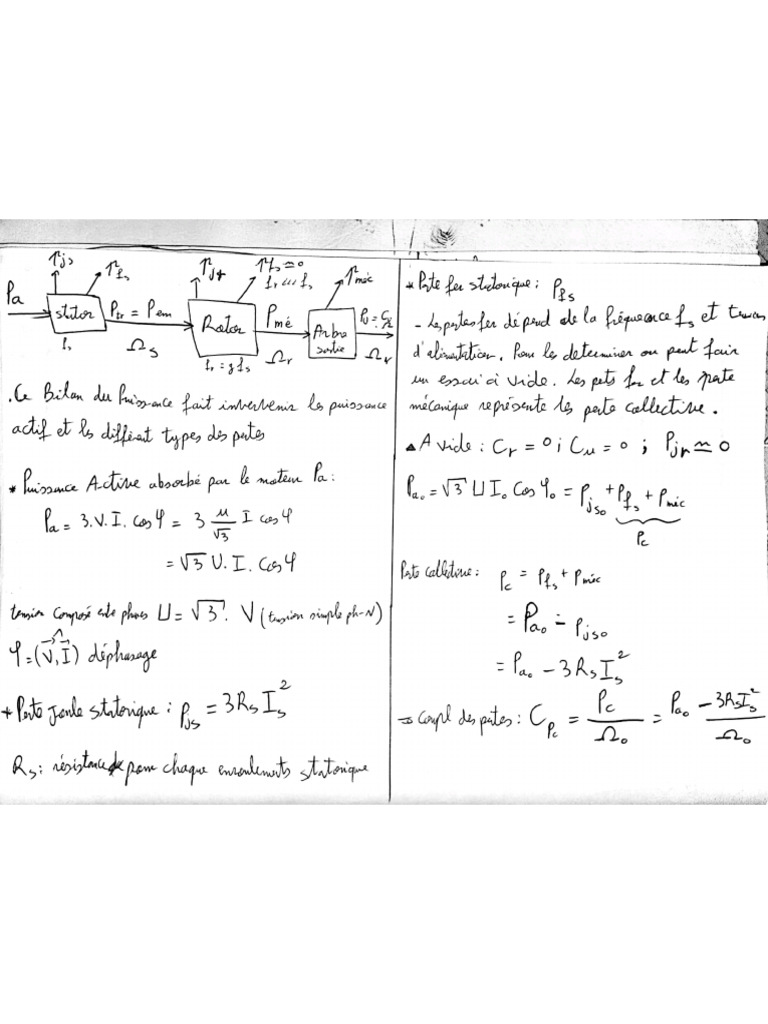 Pjs
Pfs
Pjr
Pfr ≃ 0
fr <<< fs
Pméc
Pa
stator
Ptr = Pem
Rotor
Pmé
Arbre
sortie
fs
Ωs
fr = g fs
Ωr
Ωr
. Ce Bilan du Puissance fait intervenir les puissance
actif et les différent types des pertes
* Puissance Active absorbé par le moteur Pa :
Pa = 3.V.I.cosφ = 3 u/√3 I cosφ
= √3 U.I.cosφ
tension composé entre phases U = √3 . V (tension simple ph-N)
φ = (V,I) déphasage
* Perte Joule statorique : Pjs = 3RsIs²
Rs : résistance pour chaque enroulements statorique
* Perte fer statorique : Pfs
- Les pertes fer dépend de la fréquence fs et
d'alimentation. Pour les determiner on peut fair
un essai à vide. Les pets fer et les perte
mécanique représente les perte collective.
△ A vide : Cr = 0 ; Cu = 0 ; Pjr ≃ 0
Pa₀ = √3 U I₀ cosφ₀ = Pjs₀ + Pfs + Pméc
Pc
Perte collective : Pc = Pfs + Pméc
= Pa₀ - Pjs₀
= Pa₀ - 3RsIs²
→ Coupl des pertes : CPc = Pc/Ω₀ = Pa₀ - 3RsIs²/Ω₀